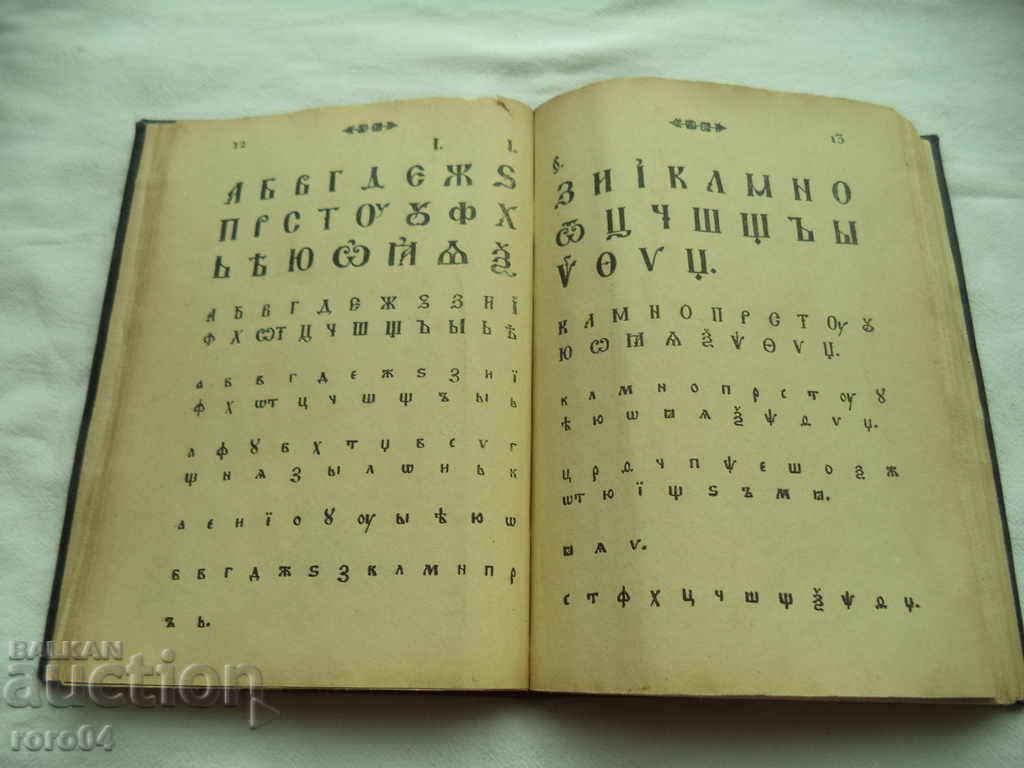 12
I. I.
А Б В Г Д Є Ж Ѕ
П Р С Т Ѹ Ꙋ Ф Х
Ь Ѣ Ю Ѡ҆ Ꙗ҆ Ѫ Ѯ
А Б В Г Д Є Ж Ѕ З Н Ї
Ф Х Ѿ Ц Ч Ш Щ Ъ Ы Ь Ѣ
а б в г д є ж ѕ з н ї
ф х ѿ ц ч ш щ ъ ы ь
а ф ꙋ б х т џ в с ѵ г
щ н ѧ з ы л ѡ н ь к
а є н ї о ꙋ ѹ ы ѣ ю ѡ
б в г д ж ѕ з к л м н п р
ъ ь.
13
§.
З И І҆ К Л М Н О
Ѿ Ц Ч Ш Щ Ъ Ы
Ѱ Ѳ Ѵ Џ.
К Л М Н О П Р С Т Ѹ Ꙋ
Ю Ѡ Ꙗ Ѧ Ѯ Ѱ Ѳ Ѵ Џ.
к л м н о п р с т ѹ ꙋ
ѣ ю ѡ ꙗ ѧ ѯ ѱ ѳ ѵ џ.
ц р д ч п ѱ є ш о ѯ ж
ѿ ю ї щ ѕ ъ м ꙗ.
ꙗ ѧ ѵ.
с т ф х ц ч ш щ ѯ ѱ ѳ џ.
BALKAN
auction
roro04